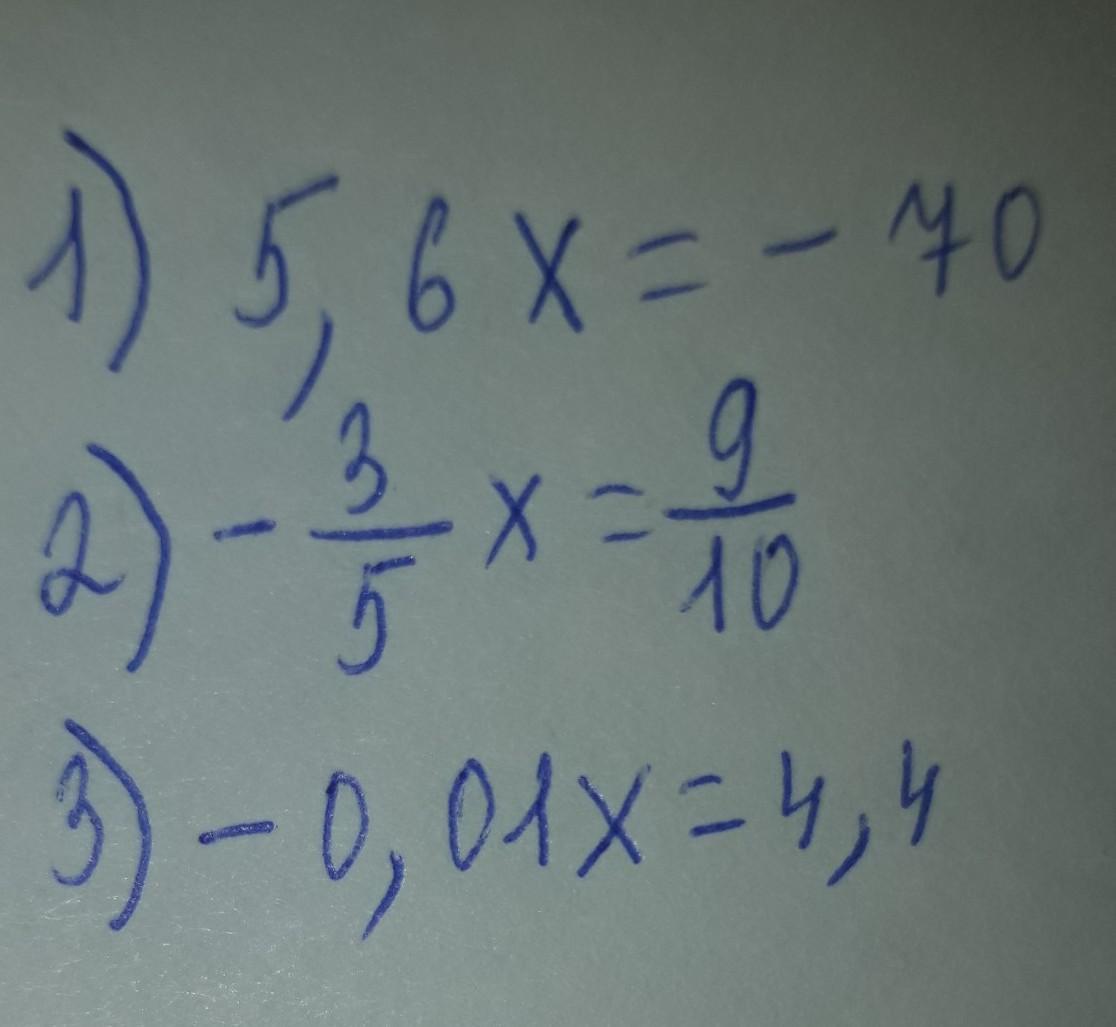 1) 5,6x = - 70
2) - 3/5 x = 9/10
3) - 0,01x = 4,4